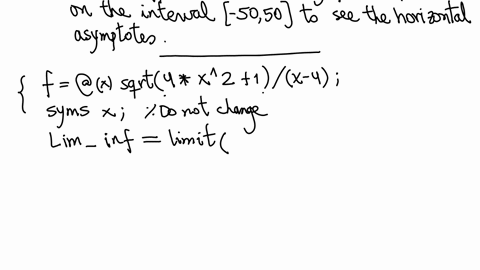 on the interval [-50,50] to see the horizontal
asymptotes.
f = @(x) sqrt(4 * x^2 + 1)/(x-4);
syms x; % Do not change
Lim_inf = limit(